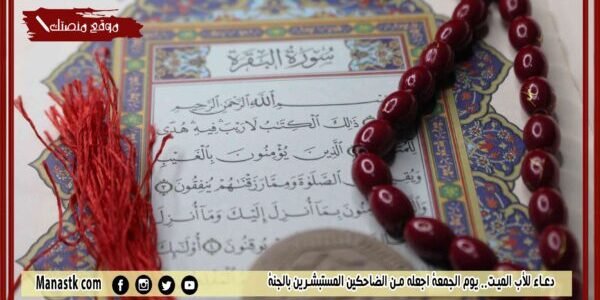 موقع منصتك
سُورَةُ الْبَقَرَةِ
ـسْمِ اللَّهِ الرَّحْمَٰنِ الرَّحِيمِ
ذَٰلِكَ الْكِتَٰبُ لَا رَيْبَ فِيهِ هُدًى
الَّذِينَ يُؤْمِنُونَ بِالْغَيْبِ
الصَّلَوٰةَ وَمِمَّا رَزَقْنَٰهُمْ يُنفِقُونَ
بِمَا أُنزِلَ إِلَيْكَ وَمَا أُنزِلَ
يُوقِنُونَ أُولَٰئِكَ
دعاء للأب الميت.. يوم الجمعة اجعله من الضاحكين المستبشرين بالجنة
Manastk.com